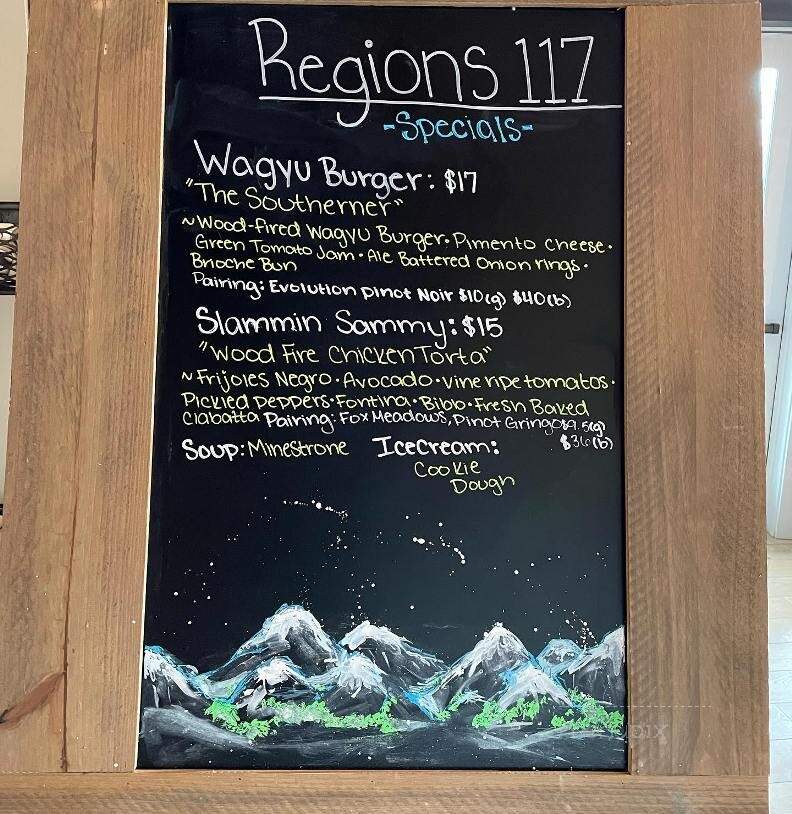 Regions 117
-Specials-
Wagyu Burger: $17
"The Southerner"
~Wood-fired Wagyu Burger • Pimento Cheese •
Green Tomato Jam • Ale Battered Onion rings •
Brioche Bun
Pairing: Evolution Pinot Noir $10(g) $40(b)
Slammin Sammy: $15
"Wood Fire Chicken Torta"
~Frijoles Negro • Avocado • vine ripe tomatos •
Pickled peppers • Fontina • Bibb • Fresh Baked
Ciabatta Pairing: Fox Meadows, Pinot Gringo $9.5(g)
$36(b)
Soup: Minestrone Icecream:
Cookie
Dough